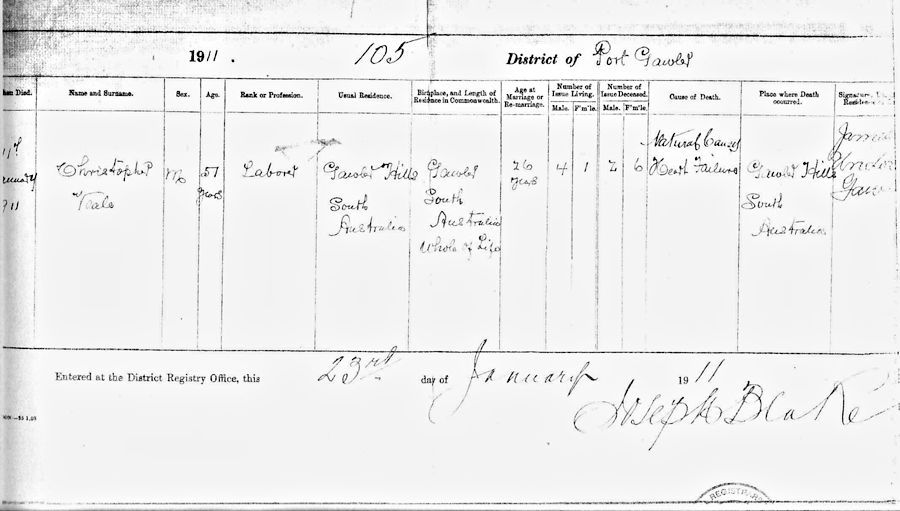 1911. 105 District of Port Gawler
hen Died. Name and Surname. Sex. Age. Rank or Profession. Usual Residence. Birthplace, and Length of Residence in Commonwealth. Age at Marriage or Re-marriage. Number of Issue Living. Male. F'm'le. Number of Issue Deceased. Male. F'm'le. Cause of Death. Place where Death occurred. Signature,
Christopher Veale
M
51 years
Laborer
Gawler Hills
South
Australia
Gawler
South
Australia
Whole of Life
26 years
4 1 2 6
Natural Causes
Heart Failure
Gawler Hills
South
Australia
James
Gaw
Entered at the District Registry Office, this 23rd day of January 1911
Joseph Blake
REGISTR